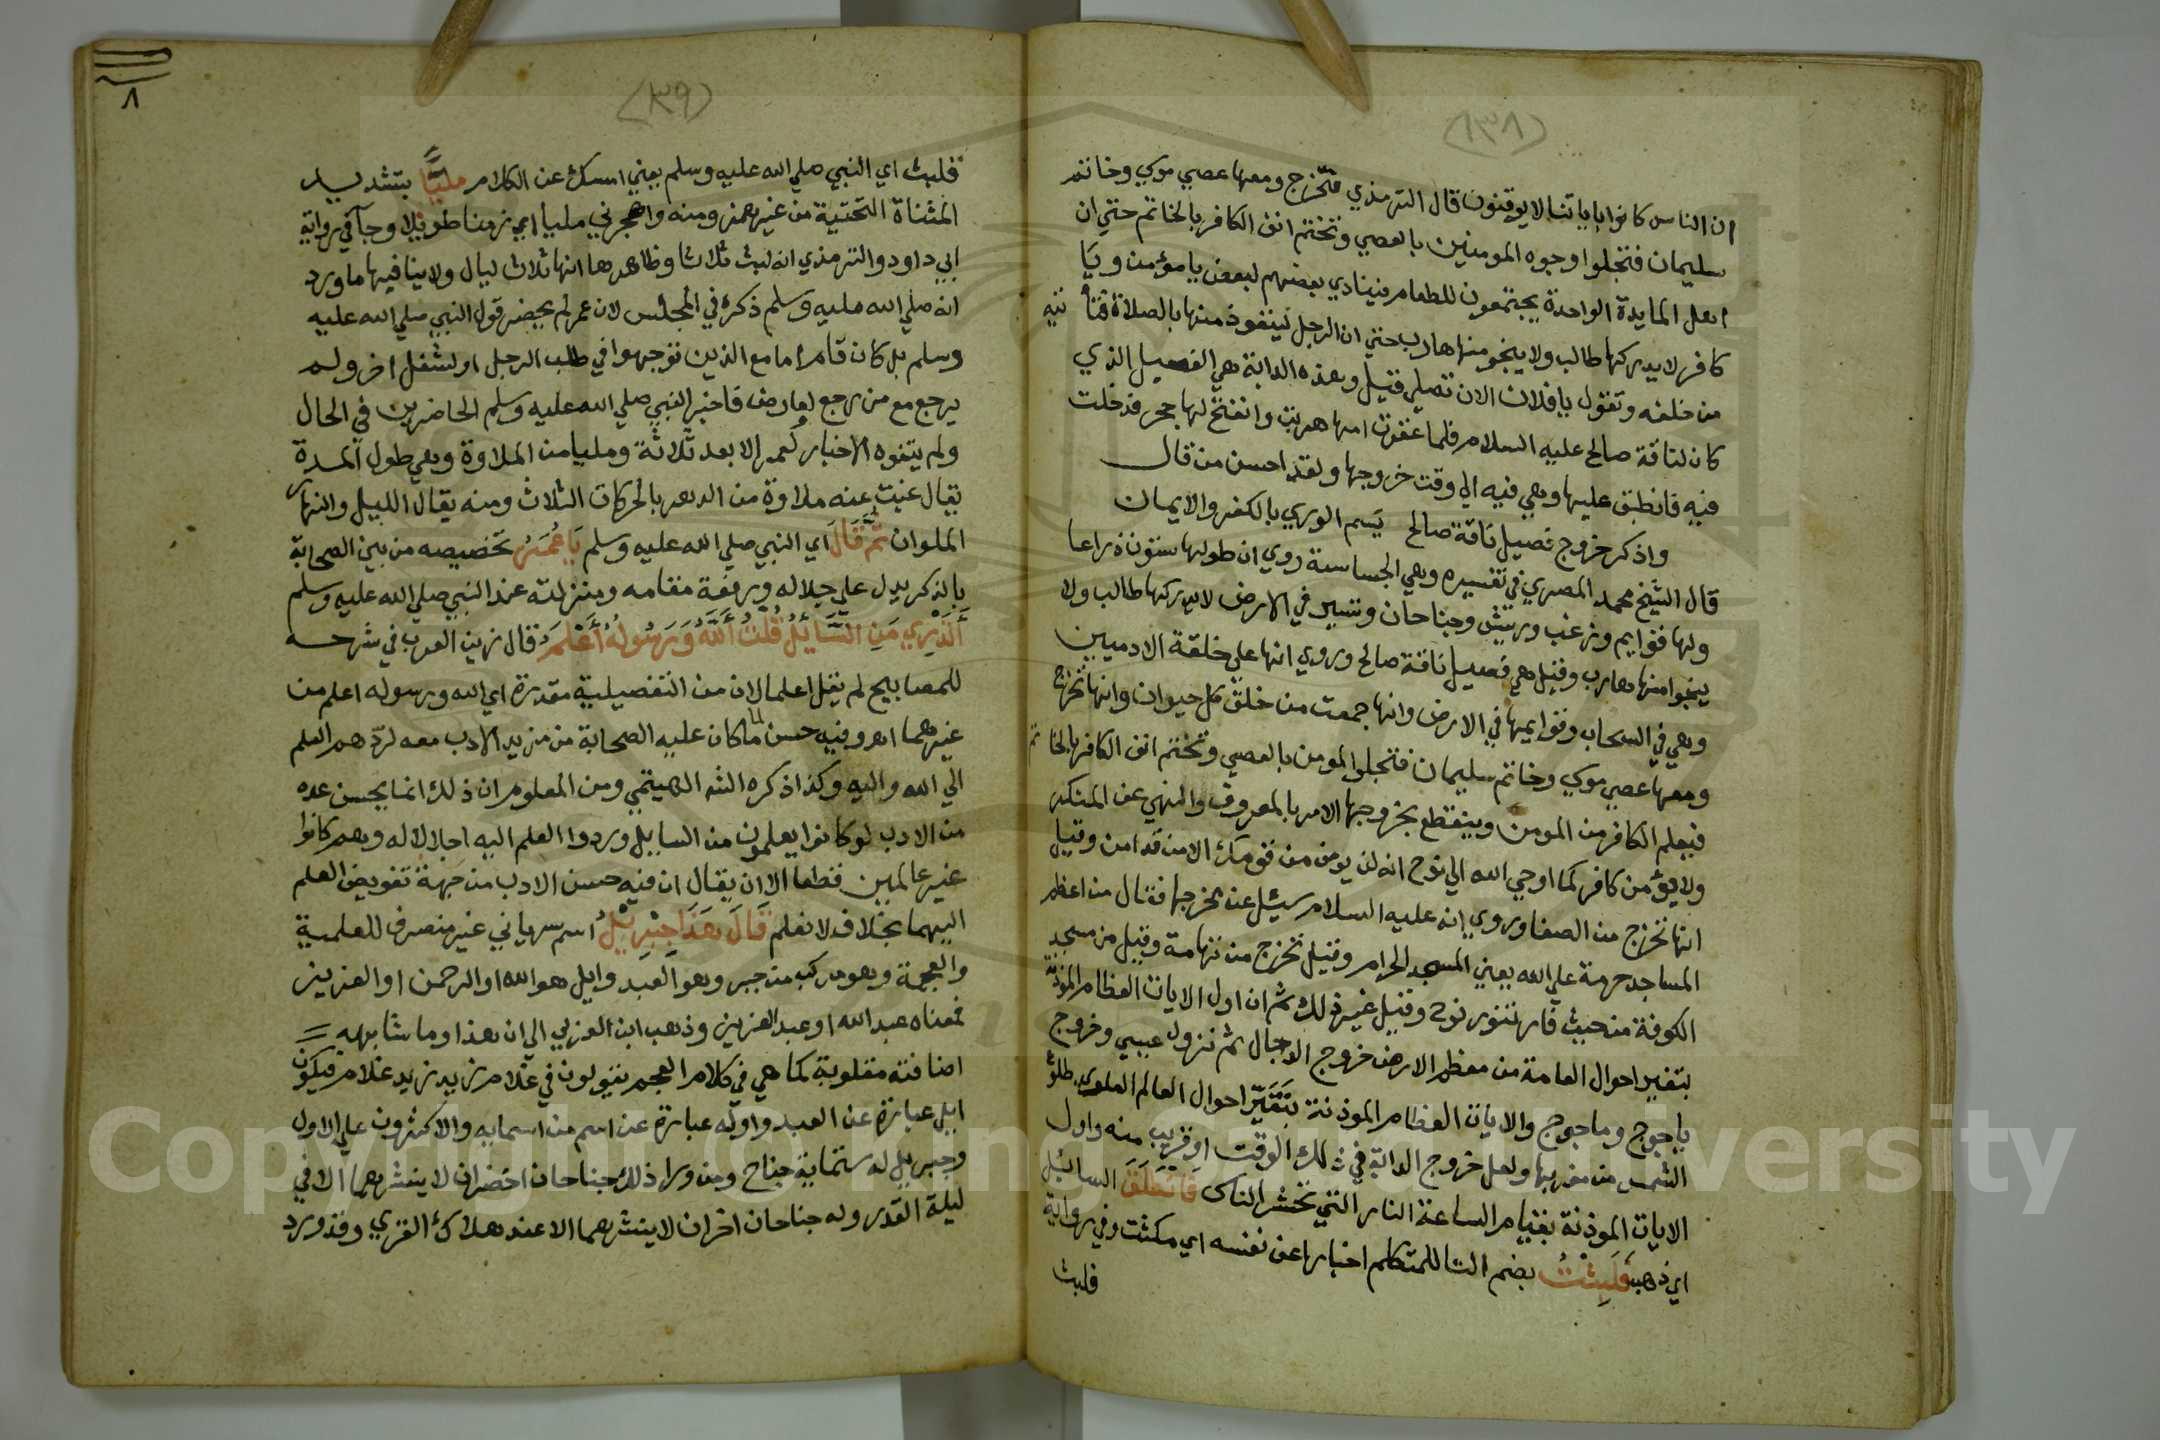 (١٣٨)
ان الناس كانوا باياتنا لا يوقنون قال الترمذي فتخرج ومعها عصي موسي وخاتم
سليمان فتجلوا وجوه المومنين بالعصي وتختم انف الكافر بالخاتم حتي ان
اهل المايدة الواحدة يجتمعون للطعام فينادي بعضهم لبعض يا مؤمن ويا
كافر لا يدركها طالب ولا ينجو منها هارب حتي ان الرجل ليتعوذ منها بالصلاة فتأتيه
من خلفه وتقول يا فلان الان تصلي وقيل وهذه الدابة هي الفصيل الذي
كان لناقة صالح عليه السلام فلما عقرت امها هربت وانفتح لها حجر فدخلت
فيه فانطبق عليها وهي فيه الي وقت خروجها ولقد احسن من قال
واذكر خروج فصيل ناقة صالح يسم الوري بالكفر والايمان
قال الشيخ محمد المصري في تفسيره وهي الجساسة روي ان طولها ستون ذراعا
ولها قوايم وزغب وريش وجناحان وتسير في الارض لا يدركها طالب ولا
ينجوا منها هارب وقيل هي فصيل ناقة صالح وروي انها علي خلقة الادميين
وهي في السحاب وقوايمها في الارض وانها جمعت من خلق كل حيوان وانها تخرج
ومعها عصي موسي وخاتم سليمان فتجلوا المومن بالعصي وتختم انف الكافر بالخاتم
فيعلم الكافر من المومن وينقطع بخروجها الامر بالمعروف والنهي عن المنكر
ولا يؤمن كافر كما اوحي الله الي نوح انه لن يومن من قومك الا من قد امن وقيل
انها تخرج من الصفا وروي انه عليه السلام سئل عن مخرجها فقال من اعظم
المساجد حرمة علي الله يعني المسجد الحرام وقيل تخرج من تهامة وقيل من مسجد
الكوفة من حيث فار تنور نوح وقيل غير ذلك ثم ان اول الايات العظام الموذنة
بتغير احوال العامة من معظم الارض خروج الدجال ثم نزول عيسي وخروج
ياجوج وماجوج والايات العظام الموذنة بتغير احوال العالم العلوي طلوع
الشمس من مغربها ولعل خروج الدابة في ذلك الوقت او قريب منه واول
الايات الموذنة بقيام الساعة النار التي تحشر الناس فانطلق السائل
اي ذهب فلبثت بضم التا للمتكلم اخبارا عن نفسه اي مكثت وفي رواية
فلبث
(٣٩)
٨
فلبث اي النبي صلي الله عليه وسلم يعني امسك عن الكلام مليا بتشديد
المثناة التحتية من غير همز ومنه واهجرني مليا اي زمنا طويلا وجآ في رواية
ابي داود والترمذي انه لبث ثلاثا وظاهرها انها ثلاث ليال ولا ينافيها ما ورد
انه صلي الله عليه وسلم ذكره في المجلس لان عمر لم يحضر قول النبي صلي الله عليه
وسلم بل كان قام اما مع الذين توجهوا في طلب الرجل او لشغل اخر ولم
يرجع مع من رجع لعارض فاخبر النبي صلي الله عليه وسلم الحاضرين في الحال
ولم يتفوه الاخبار لعمر الا بعد ثلاثة ومليا من الملاوة وهي طول المدة
يقال غبت عنه ملاوة من الدهر بالحركات الثلاث ومنه يقال الليل والنهار
الملوان ثم قال اي النبي صلي الله عليه وسلم يا عمر تخصيصه من بين الصحابة
بالذكر يدل علي جلاله ورفعة مقامه ومنزلته عند النبي صلي الله عليه وسلم
أتدري من السائل قلت الله ورسوله أعلم قال زين العرب في شرحه
للمصابيح لم يقل اعلما لان من التفضيلية مقدرة اي الله ورسوله اعلم من
غيرهما اهـ وفيه حسن ما كان عليه الصحابة من مزيد الادب معه لردهم العلم
الي الله واليه وكذا ذكره الشهـ الهيتمي ومن المعلوم ان ذلك انما يحسن عده
من الادب لو كانوا يعلمون من السايل وردوا العلم اليه اجلالا له وهم كانوا
غير عالمين قطعا الا ان يقال ان فيه حسن الادب من جهة تفويض العلم
اليهما بخلاف لا نعلم قال هذا جبريل اسم سرياني غير منصرف للعلمية
والعجمة وهو مركب من جبر وهو العبد وايل هو الله او الرحمن او العزيز
فمعناه عبد الله او عبد العزيز وذهب ابن العربي الي ان هذا وما شابهه
اضافته مقلوبة كما هي في كلام العجم يقولون في غلام زيد زيد غلام فيكون
ايل عبارة عن العبد واوله عبارة عن اسم من اسمايه والاكثرون علي الاول
وجبريل له ستماية جناح ومن ورا ذلك جناحان اخضران لا ينشرهما الا في
ليلة القدر وله جناحان اخران لا ينشرهما الا عند هلاك القري وقد ورد
Copyright © King Saud University